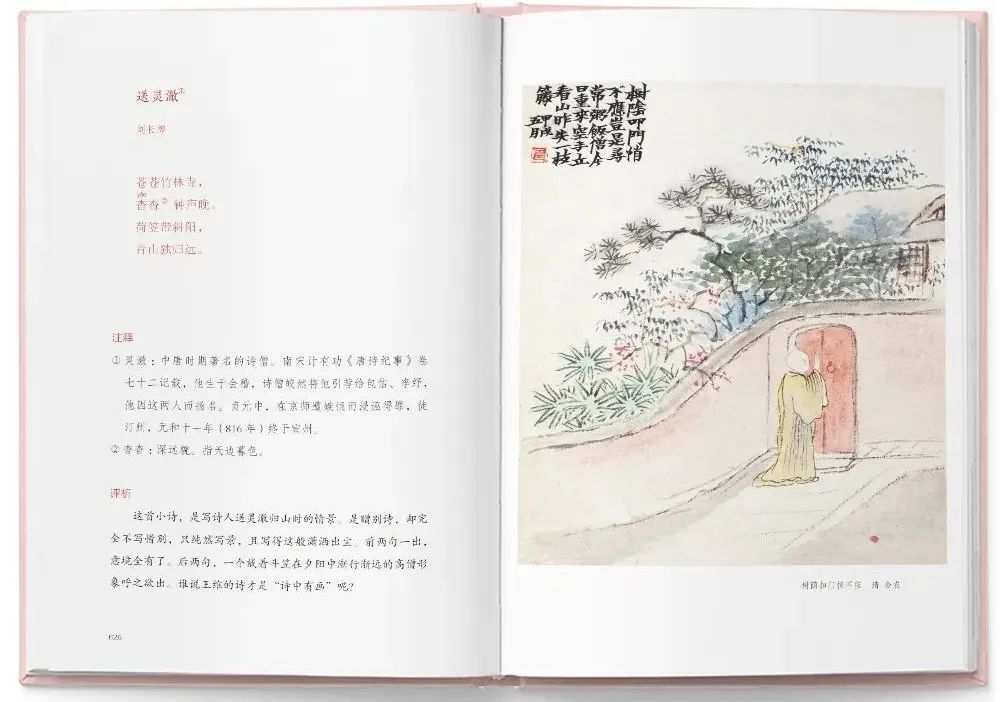 送灵澈①
刘长卿
苍苍竹林寺，
杳杳② 钟声晚。
荷笠带斜阳，
青山独归远。
注释
① 灵澈：中唐时期著名的诗僧。南宋计有功《唐诗纪事》卷
七十二记载，他生于会稽，诗僧皎然将他引荐给包佶、李纾，
他因这两人而扬名。贞元中，在京师遭嫉恨而浸诬得罪，徙
汀州，元和十一年（816年）终于宣州。
② 杳杳：深远貌。指天边暮色。
评析
这首小诗，是写诗人送灵澈归山时的情景。是赠别诗，却完
全不写惜别，只纯然写景，且写得这般潇洒出尘。前两句一出，
意境全有了。后两句，一个戴着斗笠在夕阳中渐行渐远的高僧形
象呼之欲出。谁说王维的诗才是“诗中有画”呢？
626
樹陰叩門悄
不應豈是尋
常粥飯僧今
日重來空手立
看山昨失一枝
籐 甲戌
五月
树荫扣门悄不应 清 金农